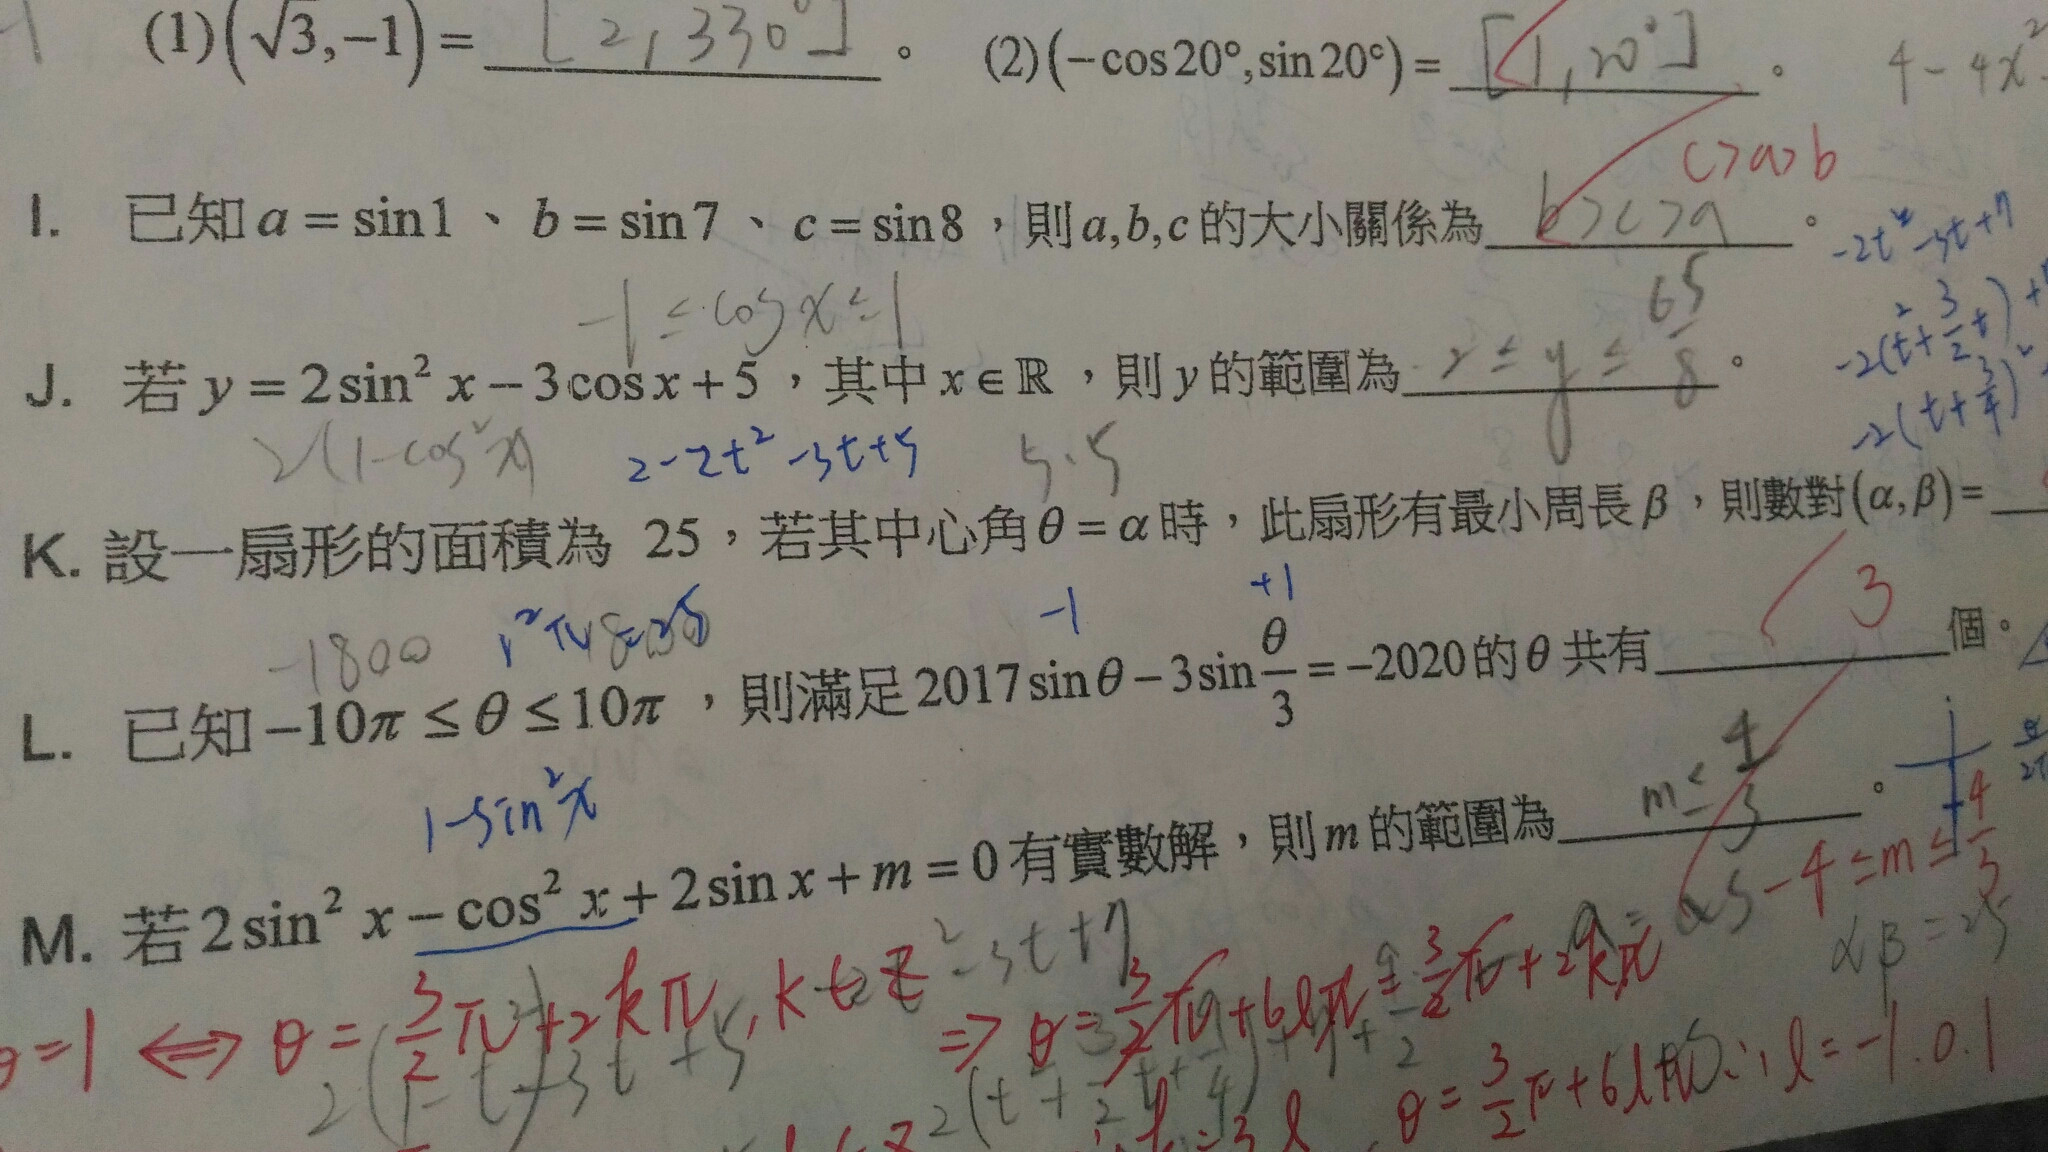 (1)(√3,−1)= [2,330°] 。 (2)(−cos20°,sin20°)= [1,20°] 。 4-4x²
c>a>b
I. 已知a=sin1、b=sin7、c=sin8，則a,b,c的大小關係為 b>c>a 。
-2t²-3t+7
-1≤cosx≤1
J. 若y=2sin²x−3cosx+5，其中x∈ℝ，則y的範圍為 2≤y≤65/8 。
-2(t²+3/2t)+
-2(t+3/4)²
2(1-cos²x) 2-2t²-3t+5 5.5
K. 設一扇形的面積為 25，若其中心角θ=α時，此扇形有最小周長β，則數對(α,β)=
-1800 -1 +1
L. 已知−10π≤θ≤10π，則滿足2017sinθ−3sin θ/3=−2020的θ共有 3 個。
1-sin²x
M. 若2sin²x−cos²x+2sinx+m=0有實數解，則m的範圍為 m≤4/3 。
-4≤m≤4/3
αβ=25
-3t+7
=1 ⟺ θ=3/2π+2kπ, k∈Z ⇒ θ=3/2π+6lπ=3/2π+2kπ
2(1-t²)-3t+5
θ=3/2π+6lπ ∴l=-1.0.1